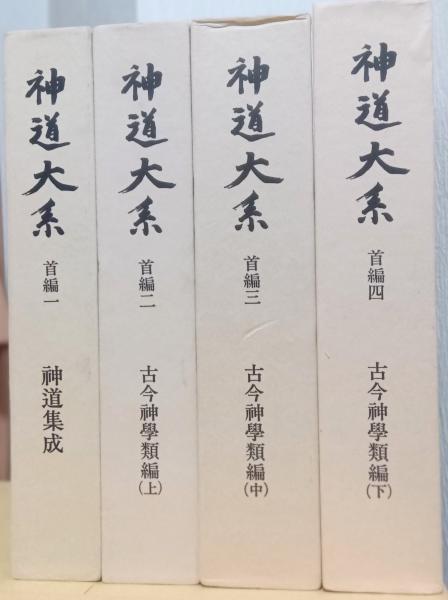 神道大系
首編一
神道集成
神道大系
首編二
古今神學類編(上)
神道大系
首編三
古今神學類編(中)
神道大系
首編四
古今神學類編(下)